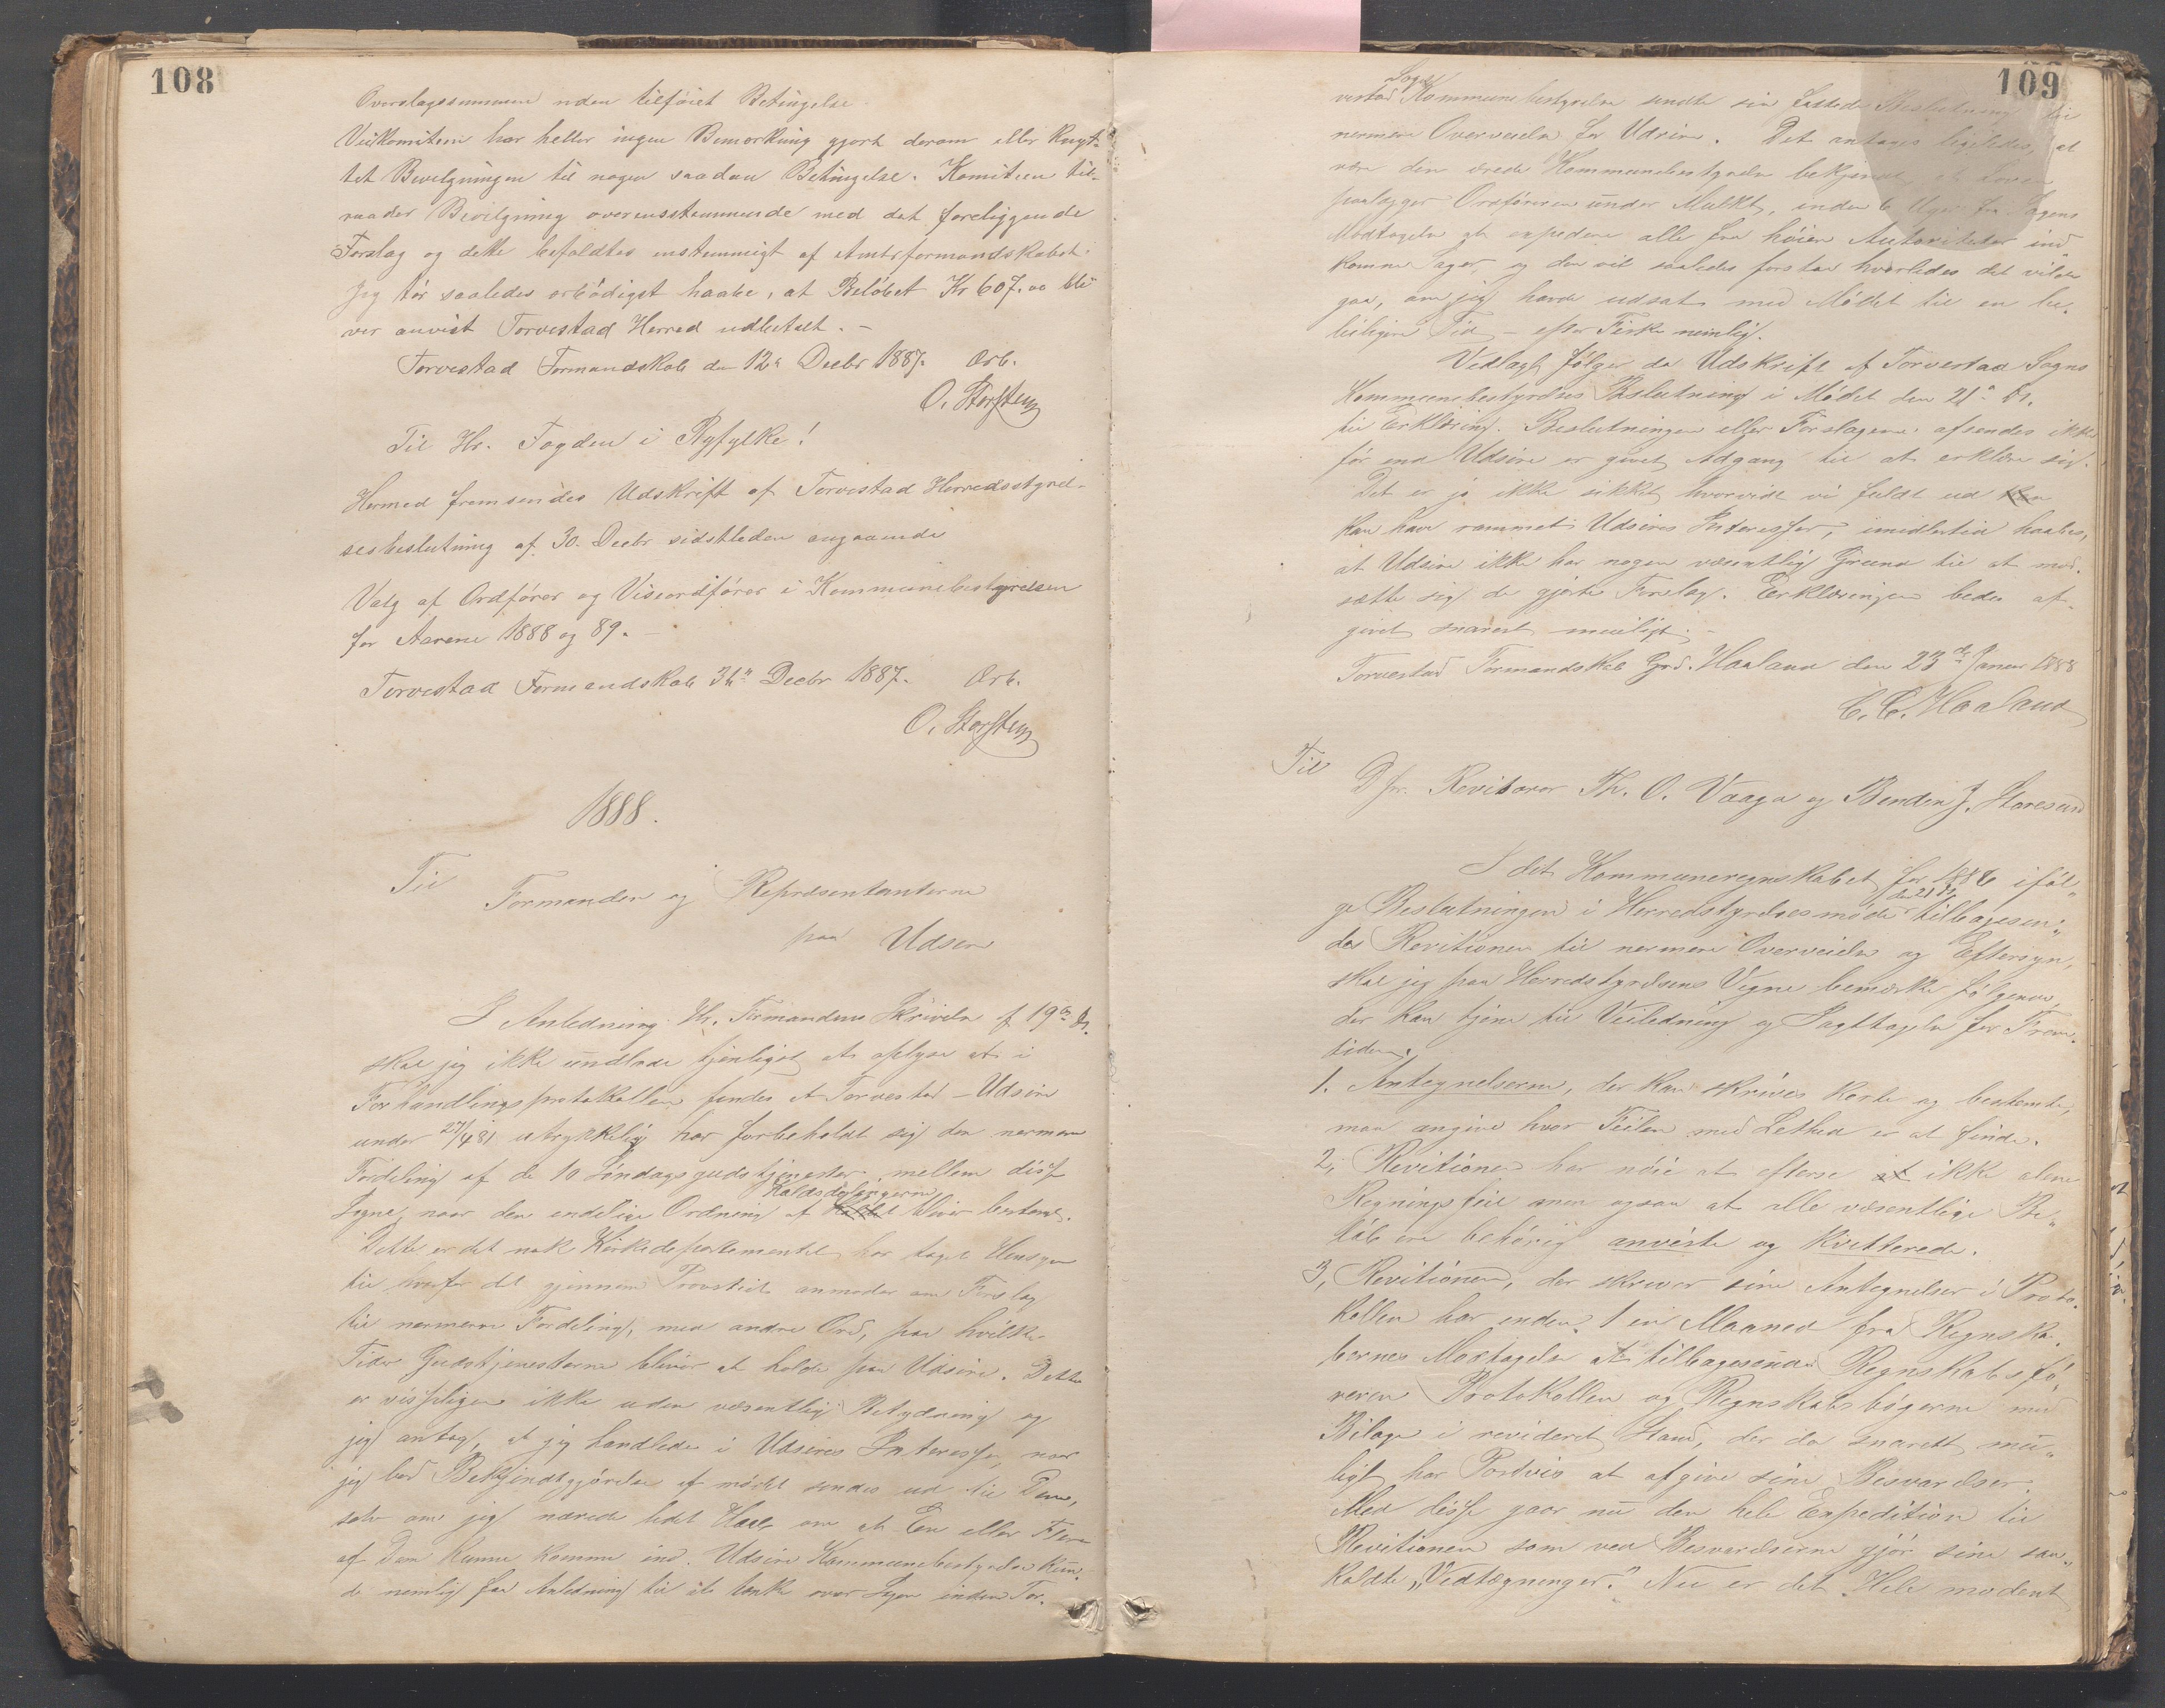 108
Overslagssummen uden tilføiet Betingelse.
Veikomiteen har heller ingen Bemærkning gjort derom eller knyt-
tet Bevilgningen til nogen saadan Betingelse. Komiteen til-
raader Bevilgning overensstemmende med det foreliggende
Forslag og dette bifaldtes enstemmigt af Amtsformandskabet.
Jeg tør saaledes ærbødigst haabe, at Beløbet Kr 607.00 bli-
ver anvist Torvestad Herred udbetalt. -
Torvestad Formandskab den 12te Decbr 1887. Ærb.
O. Storsten
Til Hr. Fogden i Ryfylke!
Hermed fremsendes Udskrift af Torvestad Herredsstyrel-
sesbeslutning af 30. Decbr sidstleden angaaende
Valg af Ordfører og Viseordfører i Kommunebestyrelsen
for Aarene 1888 og 89. -
Torvestad Formandskab 31te Decbr 1887. Ærb.
O. Storsten
1888.
Til Formanden og Repræsentanterne
paa Udsire
I Anledning Hr. Formandens Skrivelse af 19de ds.
skal jeg ikke undlade tjenligst at oplyse at i
Forhandlingsprotokollen findes at Torvestad - Udsire
under 27/4 81 utrykkelig har forbeholdt sig den nærmere
Fordeling af de 10 Søndagsgudstjenester mellem disse
Sogne, naar den endelige Ordning af Kaldsdelingerne bliver bestemt.
Dette er det nok Kirkedepartementet har taget Hensyn
til hvorfor det gjennem Provstiet anmoder om Forslag
til nærmere Fordeling, med andre Ord, paa hvilke
Tider Gudstjenesterne bliver at holde paa Udsire. Dette
er visselig ikke uden væsentlig Betydning og
jeg antog, at jeg handlede i Udsires Interesse, naar
jeg lod Bekjendtgjørelse af mødet sendes ud til Dem,
selv om jeg nærede lidet Haab om at En eller Flere
af Dem kunne komme ind. Udsire Kommunebestyrelse kun-
de nemlig faa Anledning til at tænke over Sagen inden Tor-
109
vestad Sogns Kommunebestyrelse sendte sin fattede Beslutning til
nærmere Overveielse for Udsire. Det antages ligeledes, at
være den ærede Kommunebestyrelse bekjendt, at Loven
paalægger Ordføreren under Mulkt, inden 6 Uger fra Sagens
Modtagelse at expedere alle fra høiere Autoriteter ind-
komne Sager, og den vil saaledes forstaa hvorledes det vilde
gaa, om jeg havde udsat med Mødet til en be-
leiligere Tid - efter Fiske nemlig.
Vedlagt følger da Udskrift af Torvestad Sogns
Kommunebestyrelses Beslutning i Mødet den 21de ds.
til Erklæring. Beslutningen eller Forslagene afsendes ikke
før end Udsire er givet Adgang til at erklære sig.
Det er jo ikke sikkert, hvorvidt vi fuldt ud
kan have rammet Udsires Interesser, imidlertid haabes,
at Udsire ikke har nogen væsentlig Grund til at mod-
sætte sig de gjorte Forslag. Erklæringen bedes af-
givet snarest muligt. -
Torvestad Formandskab Grd. Haaland den 23de Januar 1888
C. C. Haaland
Til
DHr. Revisorer Th. O. Vaaga og Bendix J. Storesund
I det Kommuneregnskabet for 1886 iføl-
ge Beslutningen i Herredstyrelsesmøde den 21 ds. tilbagesen-
des Revitionen til nærmere Overveielse og Eftersyn,
skal jeg paa Herredstyrelsens Vegne bemærke følgende,
der kan tjene til Veiledning og Iagttagelse for Frem-
tiden.
1. Antegnelserne, der kan skrives korte og bestemte,
maa angive hvor Feilen med Lethed er at finde.
2, Revitionen har nøie at efterse ikke alene
Regningsfeil men ogsaa at alle væsentlige Be-
løb ere behørig anviste og kvitterede.
3, Revitionen, der skriver sine Antegnelser i Proto-
kollen har inden 1 en Maaned fra Regnska-
bernes Modtagelse at tilbagesende Regnskabsfø-
reren Protokollen og Regnskabsbøgerne med
Bilage i revideret Stand, der da snarest mu-
ligt har Portvis at afgive sine Besvarelser.
Med disse gaar nu den hele Expedition til
Revitionen som ved Besvarelserne gjør sine saa-
kaldte "Vedtegninger." Nu er det Hele modent